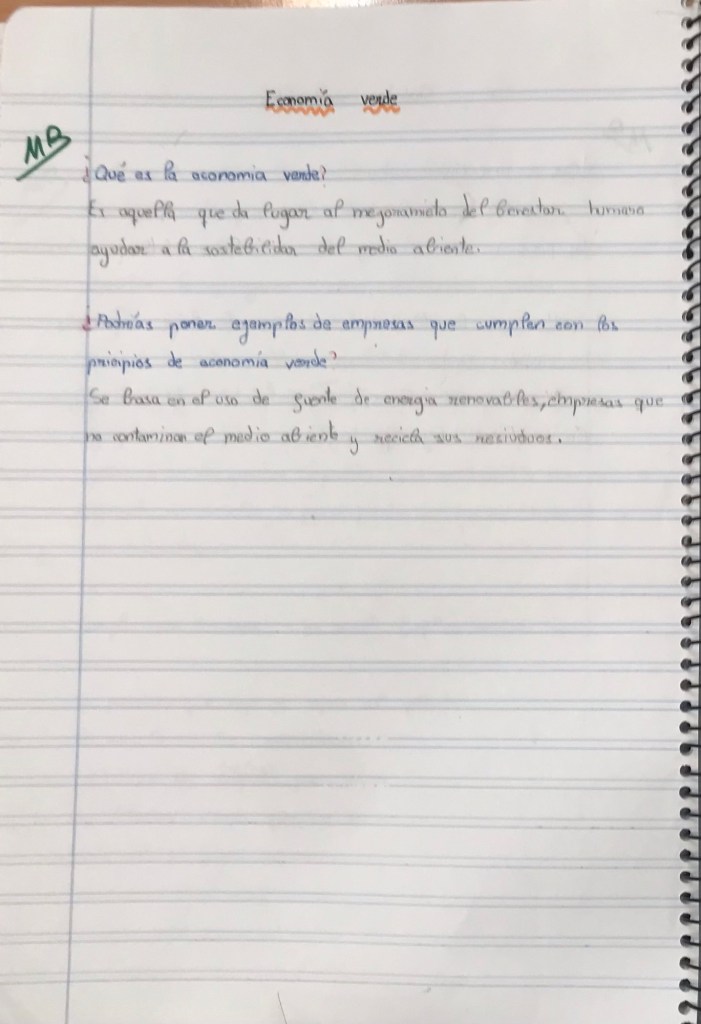 Economía verde
MB
¿Qué es la economia verde?
Es aquella que da lugar al megoramieto del benestar humano
ayudar a la sostebilidar del medio abiente.
¿Podrías poner egemplos de empresas que cumplen con los
pricipios de economía verde?
Se basa en el uso de fuente de energia renovables, empresas que
no contaminan el medio abiente y recicla sus resiuduos.